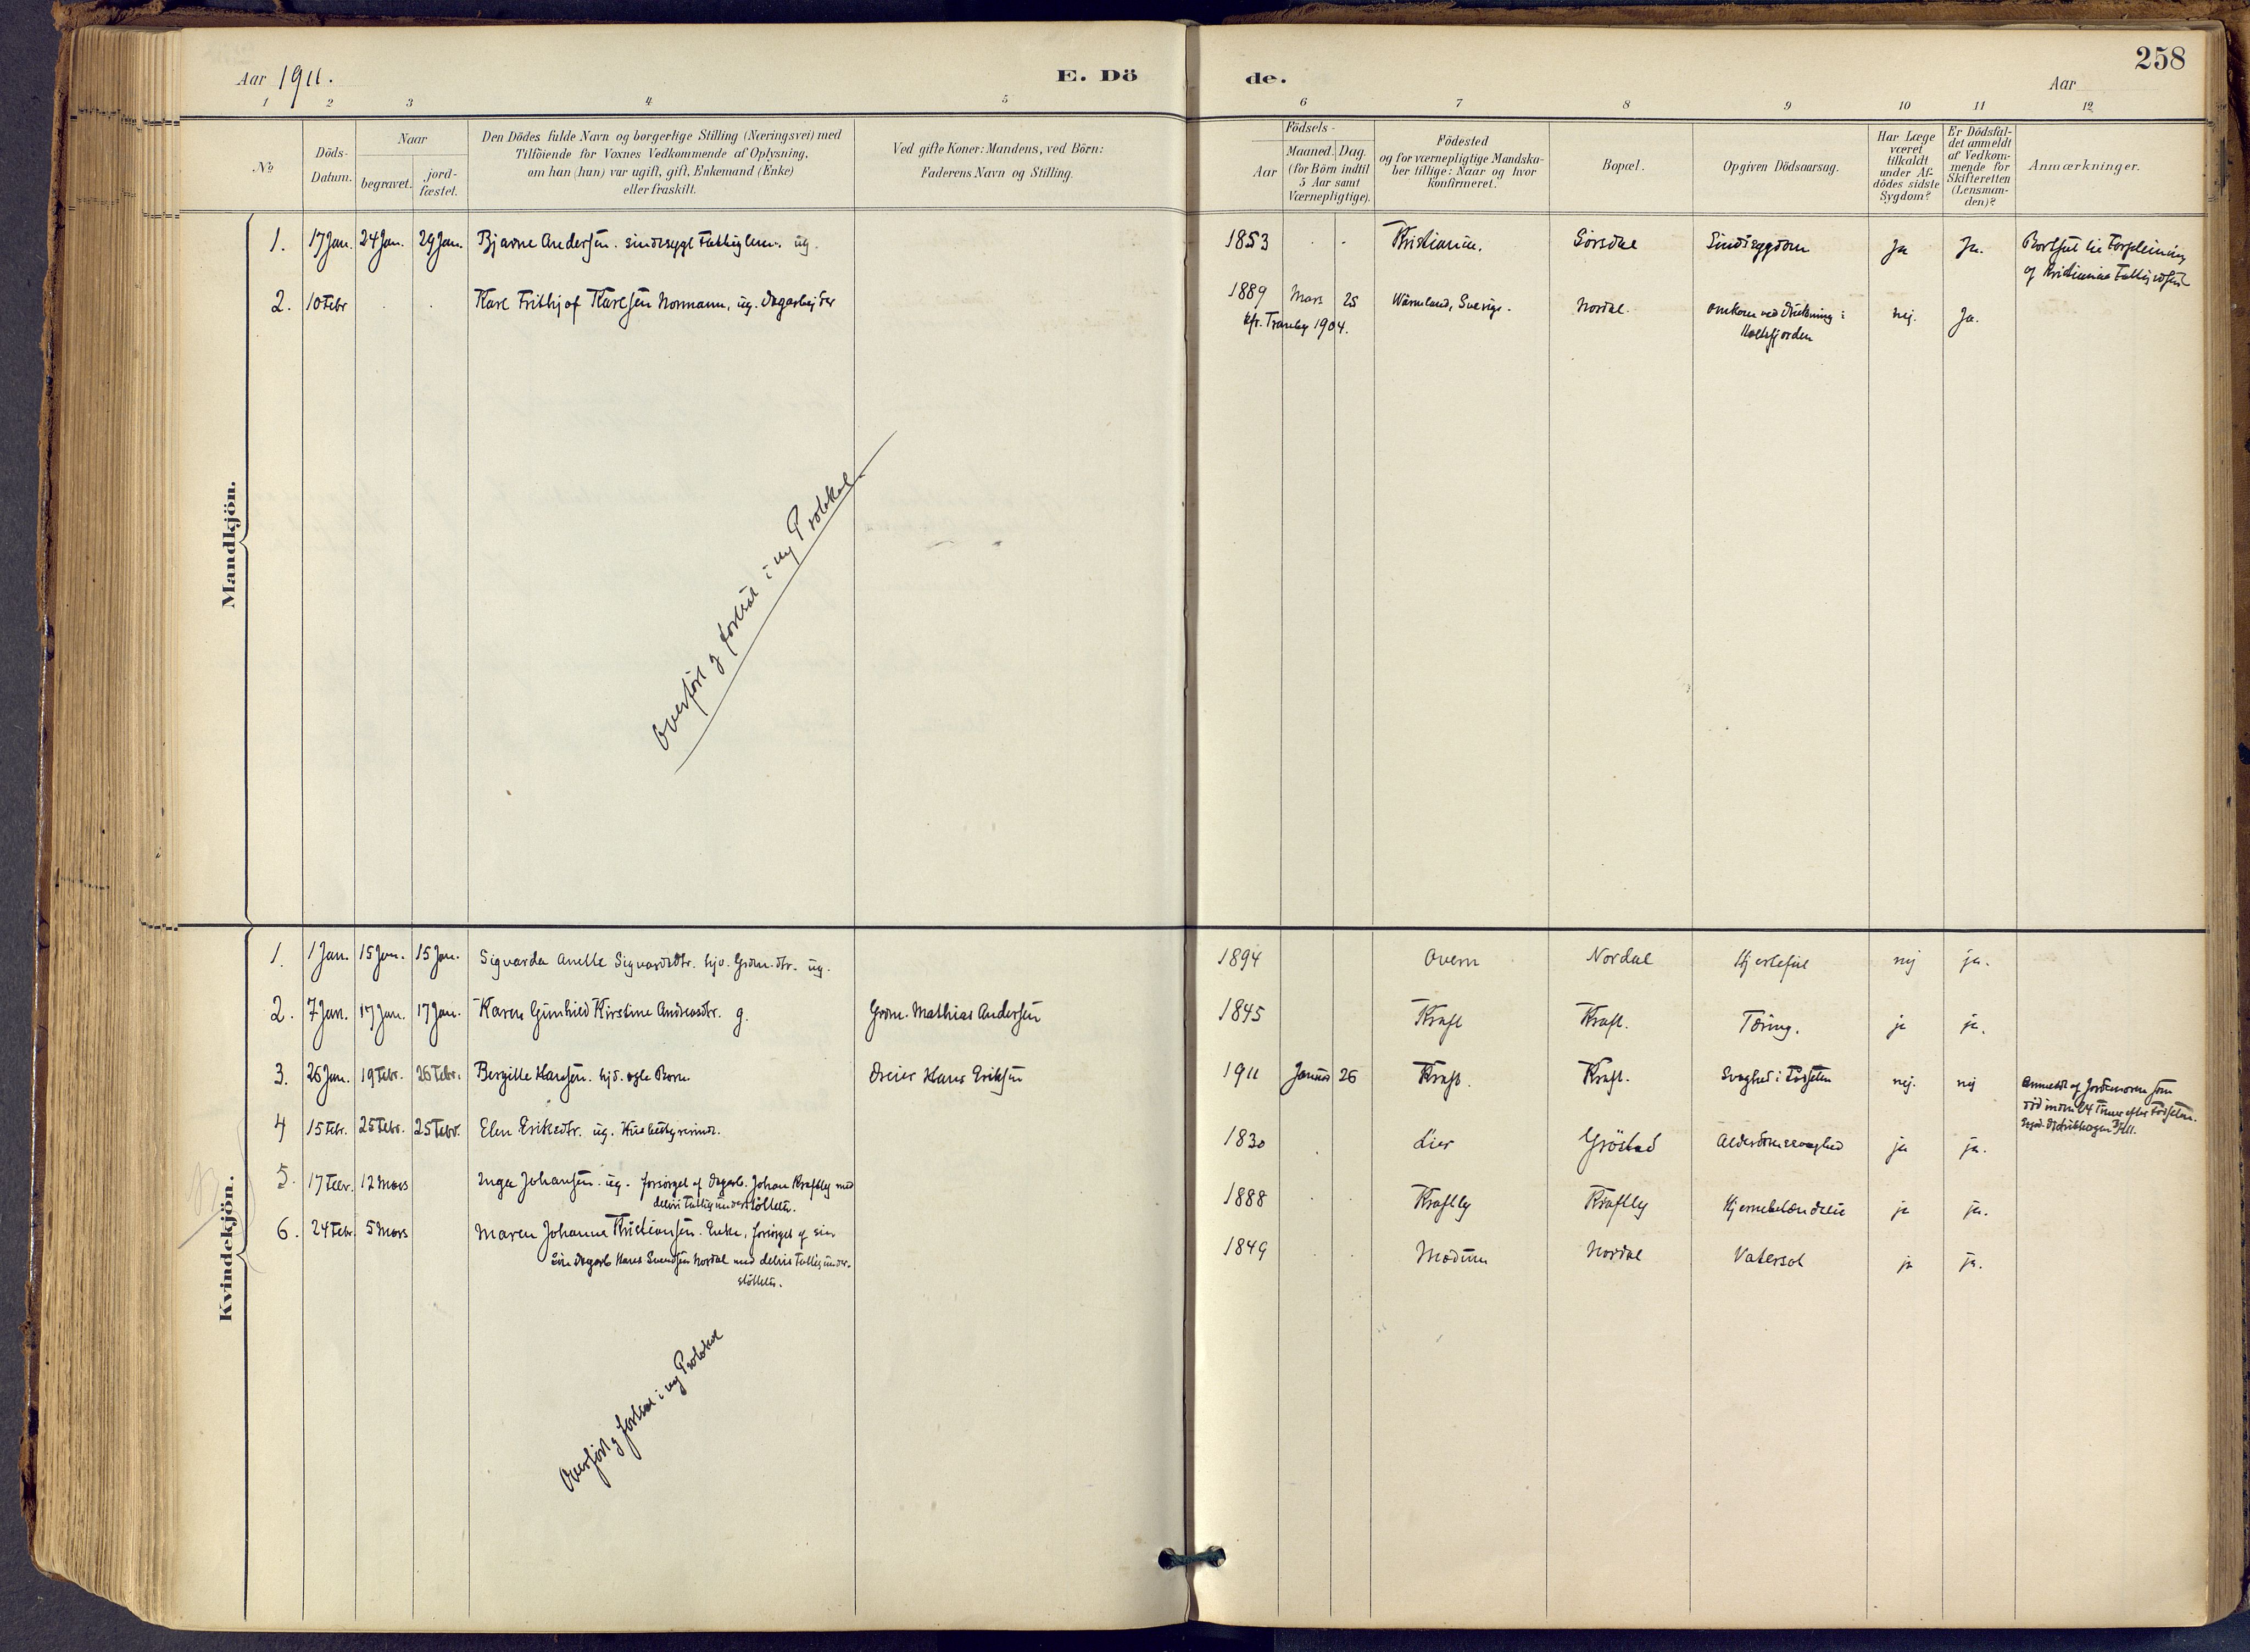 258
Aar 1911.
E. Dö
de.
Aar
1 2 3 4 5 6 7 8 9 10 11 12
No
Döds-
Datum.
Naar
begravet.
jord-
fæstet.
Den Dödes fulde Navn og borgerlige Stilling (Næringsvei) med
Tilföiende for Voxnes Vedkommende af Oplysning,
om han (hun) var ugift, gift, Enkemand (Enke)
eller fraskilt.
Ved gifte Koner: Mandens, ved Börn:
Faderens Navn og Stilling.
Födsels-
Aar
Maaned. Dag.
(for Börn indtil
5 Aar samt
Værnepligtige).
Födested
og for værnepligtige Mandska-
ber tillige: Naar og hvor
konfirmeret.
Bopæl.
Opgiven Dödsaarsag.
Har Læge
været
tilkaldt
under Af-
dödes sidste
Sygdom?
Er Dödsfal-
det anmeldt
af Vedkom-
mende for
Skifteretten
(Lensman-
den)?
Anmærkninger.
Mandkjön.
1. 17 Jan. 24 Jan. 29 Jan. Bjarne Andersen. sindssygt Fattiglem. ug. 1853 Kristiania. Sørsdal Sindssygdom Ja Ja. Bortsat til Forpleining
af Kristiania
2. 10 Febr Karl Frithjof Karlsen Normann, ug. Dagarbejder 1889 Mars 25 Wärmland, Sverige. Nordal. omkom ved Drukning i nej. Ja.
kfr. Tranby 1904. Holtsfjorden
Overført og fortsat i ny Protokol
Kvindekjön.
1. 1 Jan. 15 Jan. 15 Jan. Sigvarda Anette Sigvardsdtr. hjv. Grdm. dtr. ug. 1894 Overn Nordal Hjertefeil nej ja.
2. 7 Jan. 17 Jan. 17 Jan. Karen Gunhild Kirstine Andreasdtr. g. Grdm. Mathias Andersen 1845 Kraft Kraft. Tæring. ja ja.
3. 26 Jan. 19 Febr. 26 Febr. Bergitte Hansen. hjd. egte Barn. Dreier Hans Eriksen 1911 Januar 26 Kraft. Kraft. Svaghed i Fødselen nej. nej Anmeldt af Jordemoren som
død inden 24 Timer efter Fødselen.
4 15 Febr. 25 Febr. 25 Febr. Elen Eriksdtr. ug. Husbestyrerinde. 1830 Lier Grøstad Alderdomssvaghed ja ja.
5. 17 Febr. 12 Mars Inga Johansen. ug. forsørget af Dagarb. Johan Kraftby med
delvis Fattigunderstøttelse. 1888 Kraftby Kraftby Hjernebetændelse ja ja.
6. 24 Febr. 5 Mars Maren Johanne Kristiansen. Enke, forsørget af sin
Søn Dagarb Hans Svendsen Nordal med delvis Fattigunder-
støttelse. 1849 Modum Nordal Vatersot ja ja.
Overført og fortsat i ny Protokol